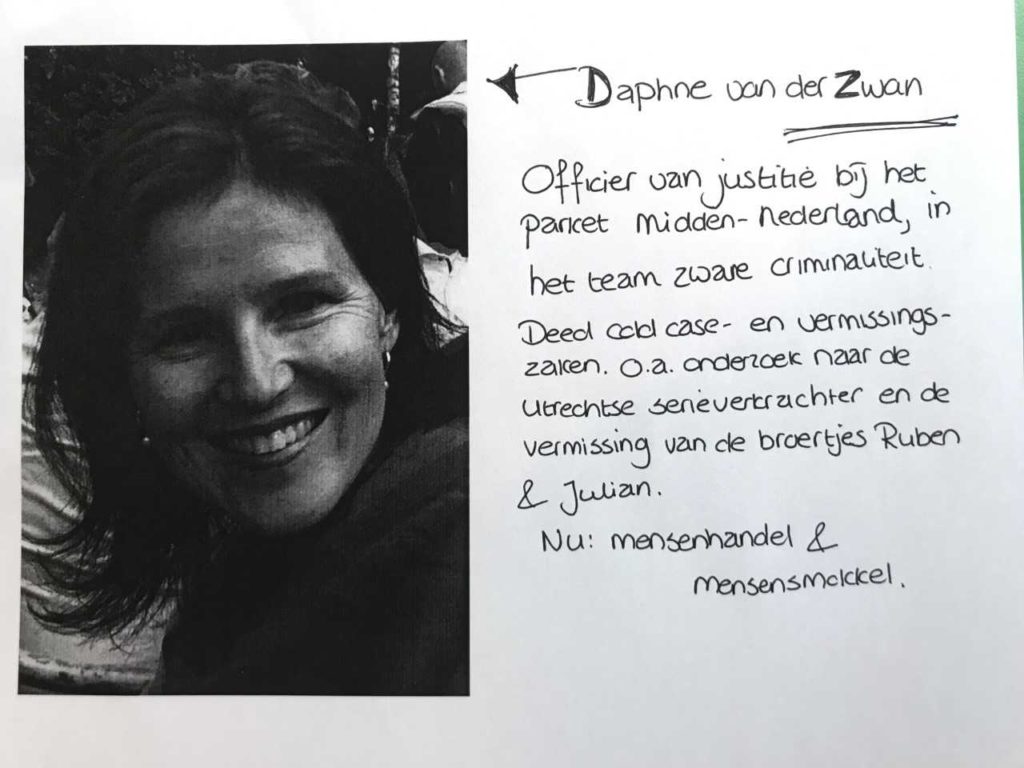 Daphne van der Zwan
Officier van justitie bij het
parket Midden-Nederland, in
het team zware criminaliteit.
Deed cold case- en vermissings-
zaken. O.a. onderzoek naar de
Utrechtse serieverkrachter en de
vermissing van de broertjes Ruben
& Julian.
Nu: mensenhandel &
mensensmokkel.